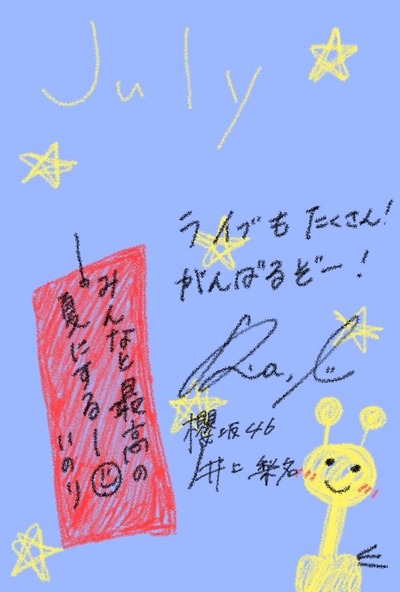 July
ライブもたくさん!
がんばるぞー!
櫻坂46
井上梨名
みんなと最高の
夏にするー!
いのり